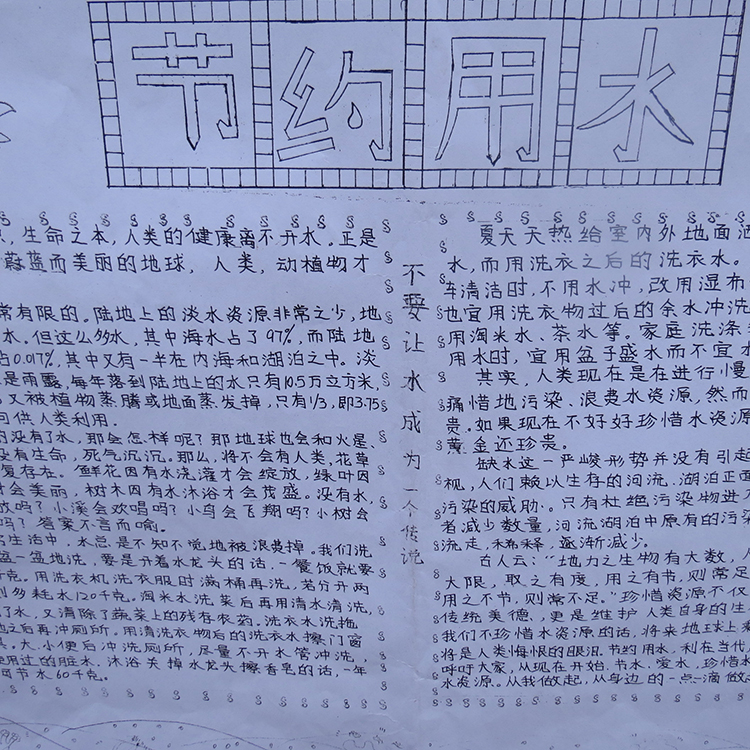 节约用水
生命之本,人类的健康离不开水。正是
蔚蓝而美丽的地球,人类,动植物才
常有限的。陆地上的淡水资源非常之少,地
水。但这么多水,其中海水占了97%,而陆地
占0.017%,其中又有一半在内海和湖泊之中。淡
是雨露,每年落到陆地上的水只有10.5万立方米,
又被植物蒸腾或地面蒸发掉,只有1/3,即3.75
可供人类利用。
的没有了水,那会怎样呢?那地球也会和火星、
没有生命,死气沉沉。那么,将不会有人类,花草
复存在。鲜花因有水浇灌才会绽放,绿叶因
才会美丽,树木因有水沐浴才会茂盛。没有水,
放吗?小溪会欢唱吗?小鸟会飞翔吗?小树会
吗?答案不言而喻。
生活中,水总是不知不觉地被浪费掉。我们洗
盆一盆地洗,要是开着水龙头的话,一餐饭就要
千克。用洗衣机洗衣服时满桶再洗,若分开两
则多耗水120千克。淘米水洗菜后再用清水清洗,
了水,又清除了蔬菜上的残存农药。洗衣水洗拖
地之后再冲厕所。用清洗衣物后的洗衣水擦门窗
具。大、小便后冲洗厕所,尽量不开水管冲洗,
使用过的脏水,沐浴关掉水龙头擦香皂的话,一年
可节水60千克。
不要让水成为一个传说
夏天天热给室内外地面洒
水,而用洗衣之后的洗衣水。
车清洁时,不用水冲,改用湿布
也宜用洗衣物过后的余水冲洗
用淘米水、茶水等。家庭洗涤
用水时,宜用盆子盛水而不宜
其实,人类现在是在进行慢
痛惜地污染、浪费水资源,然而
贵。如果现在不好好珍惜水资源
黄金还珍贵。
缺水这一严峻形势并没有引起
视,人们赖以生存的河流、湖泊正面
污染的威胁。只有杜绝污染物进
者减少数量,河流湖泊中原有的污染
流走,稀释,逐渐减少。
古人云:“地力之生物有大数,人
大限,取之有度,用之有节,则常足
用之不节,则常不足。”珍惜资源不仅
传统美德,更是维护人类自身的生
我们不珍惜水资源的话,将来地球上
将是人类悔恨的眼泪。节约用水,利在当代
呼吁大家,从现在开始,节水、爱水,珍惜
水资源。从我做起,从身边的一点一滴做